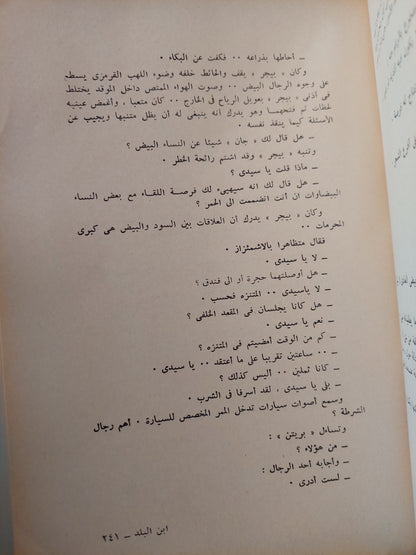 ـ أحاطها بذراعه .. فكفت عن البكاء .
وكان « بيجر » يقف والحائط خلفه وضوء اللهب القرمزى يسطع
على وجوه الرجال البيض .. وصوت الهواء الممتص داخل الموقد يختلط
فى أذنى « بيجر » بعويل الرياح فى الخارج .. كان متعبا ، وأغمض عينيه
لحظات ثم فتحهما وهو يدرك أنه ينبغى له أن يظل متنبها ويجيب عن
الأسئلة كيما ينقذ نفسه .
ـ هل قال لك « جان » شيئا عن النساء البيض ؟
وتنبه « بيجر » وقد اشتم رائحة الخطر .
ـ ماذا قلت يا سيدى ؟
ـ هل قال لك انه سيهيىء لك فرصة اللقاء مع بعض النساء
البيضاوات ان أنت انضممت الى الحمر ؟
وكان « بيجر » يدرك أن العلاقات بين السود والبيض هى كبرى
المحرمات ..
فقال متظاهرا بالاشمئزاز .
ـ لا يا سيدى .
ـ هل أوصلتهما حجرة أو الى فندق ؟
ـ لا ياسيدى .. المتنزه فحسب .
ـ هل كانا يجلسان فى المقعد الخلفى ؟
ـ نعم يا سيدى .
ـ كم من الوقت أمضيتم فى المتنزه ؟
ـ .. ساعتين تقريبا على ما أعتقد .. يا سيدى .
ـ كانا ثملين .. أليس كذلك ؟
ـ بلى يا سيدى ، لقد أسرفا فى الشرب .
وسمع أصوات سيارات تدخل الممر المخصص للسيارة . أهم رجال
الشرطة ؟
وتساءل « بريتن » :
ـ من هؤلاء ؟
ـ وأجابه أحد الرجال :
ـ لست أدرى .
ابن البلد ـ ٢٤١